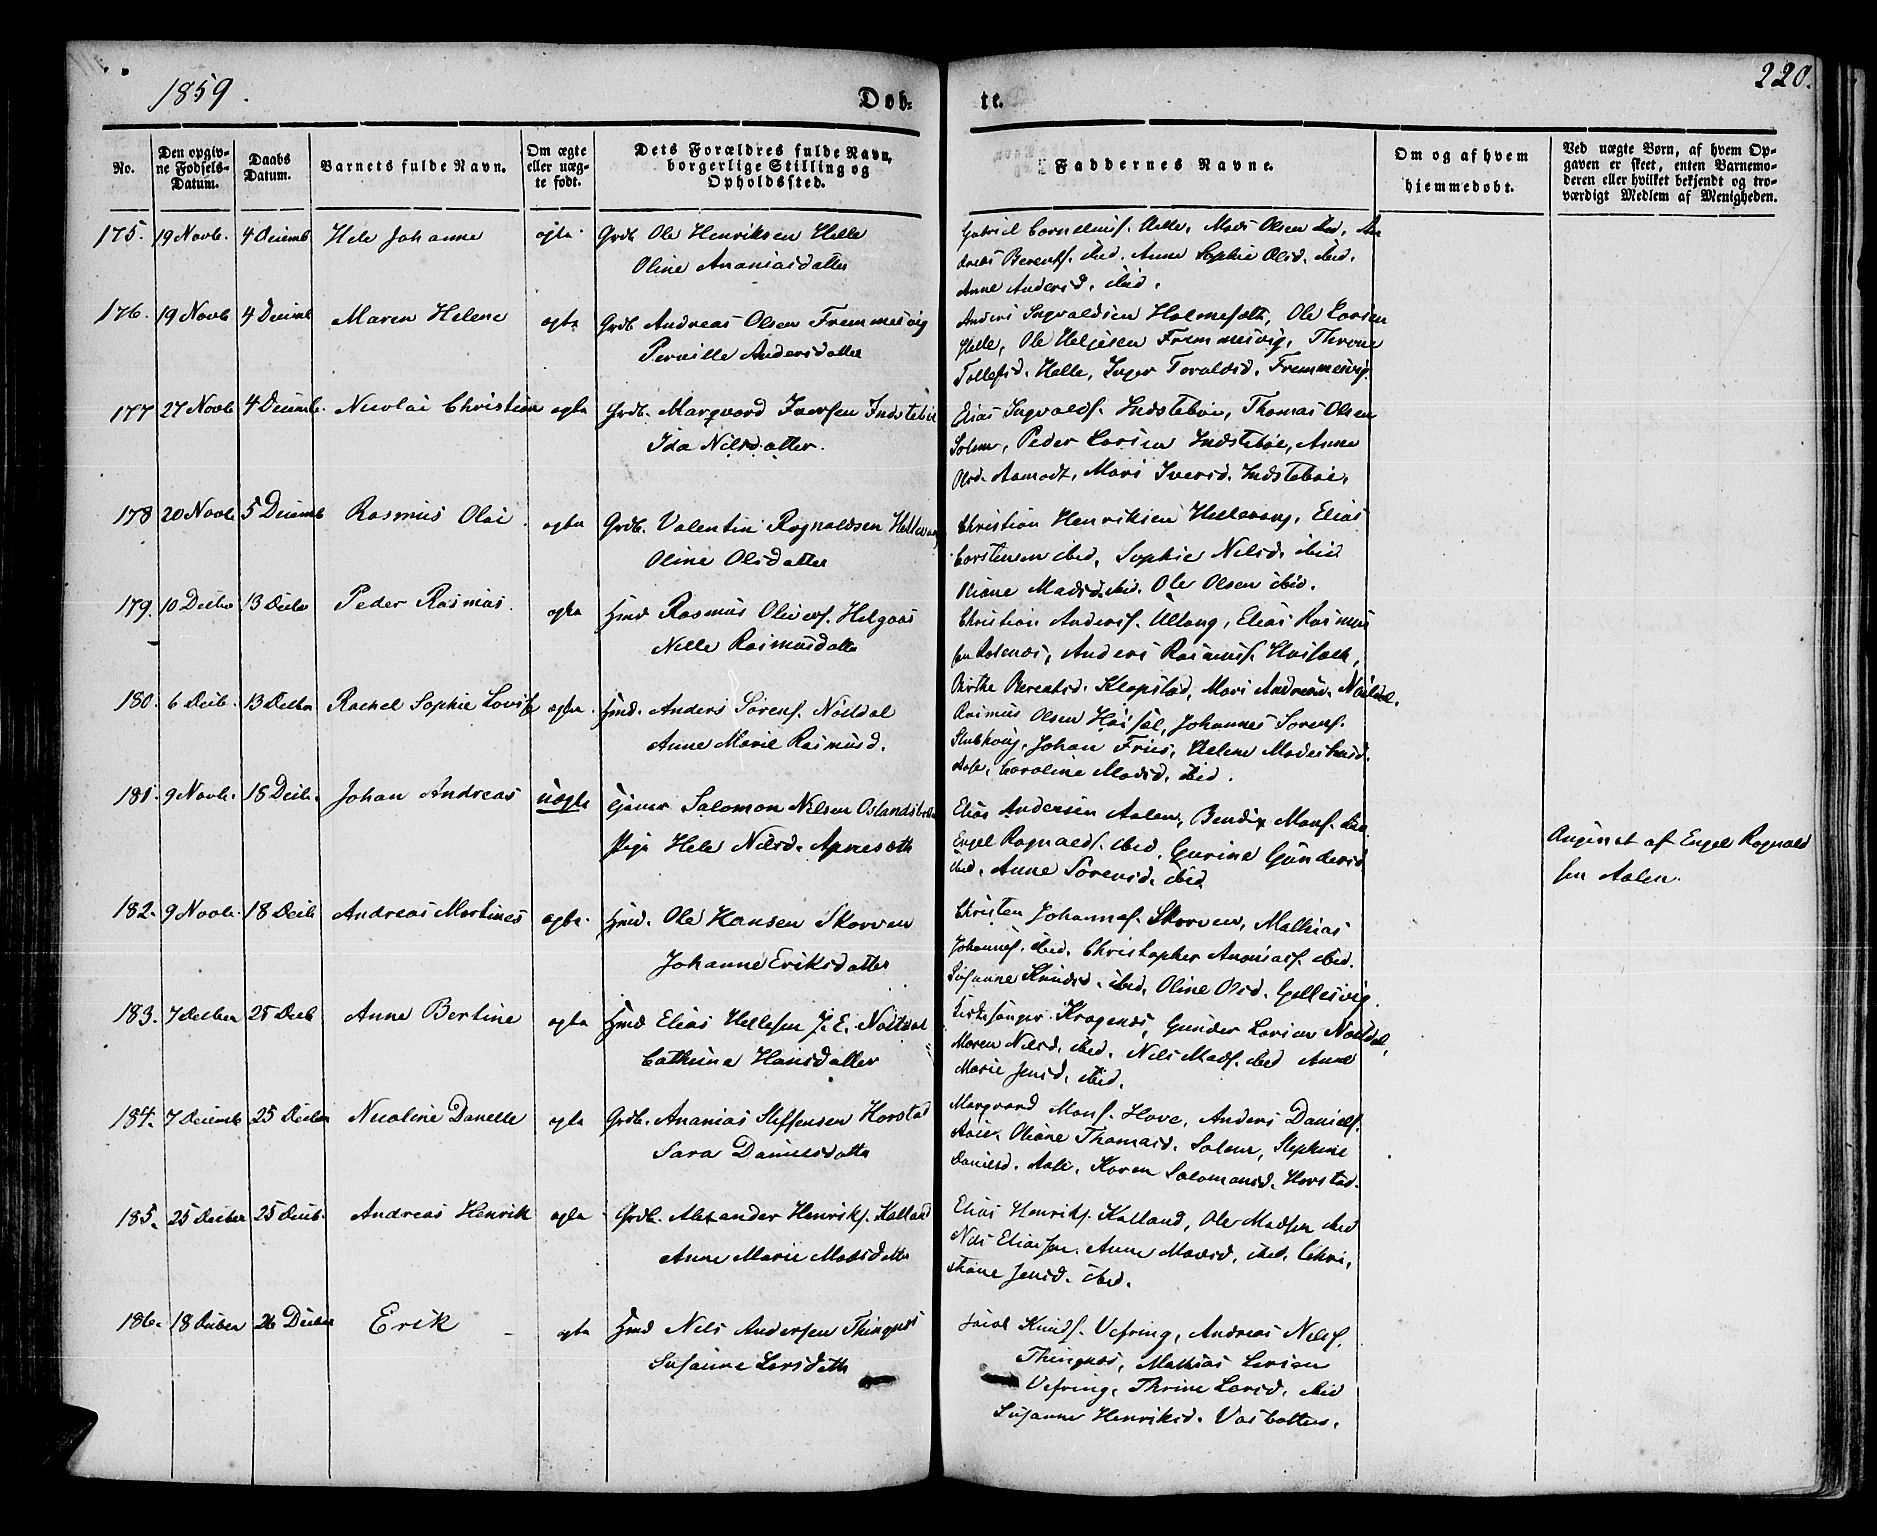 1859.
Døb-
te.
220.
No.
Den opgiv-
ne Fødsels-
Datum.
Daabs
Datum.
Barnets fulde Navn.
Om ægte
eller uæg-
te født.
Dets Forældres fulde Navn,
borgerlige Stilling og
Opholdssted.
Faddernes Navne.
Om og af hvem
hjemmedøbt.
Ved uægte Børn, af hvem Op-
gaven er skeet, enten Barnemo-
deren eller hvilket bekjendt og tro-
værdigt Medlem af Menigheden.
175. 19 Novb. 4 Decemb Hele Johanne ægte Grdb. Ole Henriksen Helle
Oline Ananiasdatter
Gabriel Corneliusf. Helle, Mads Olsen ibd, An
dreas Berentf. ibid. Anne Sophie Olsd. ibid.
Anne Andersd. ibid.
176. 19 Novb 4 Decemb Maren Helene ægte Grdb Andreas Olsen Fremmesvig
Pernille Andersdatter
Anders Ingvaldsen Holmesæth, Ole Larsen
Helle, Ole Helgesen Fremmesvig, Throne
Tollefsd. Helle, Inger Toraldsd. Fremmesvig.
177 27 Novb 4 Decemb. Nicolai Christian ægte Grdb. Marqvard Iversen Indstebøe
Ida Nilsdatter.
Elias Ingvaldf. Indstebøe, Thomas Olsen
Solem, Peder Larsen Indstebøe, Anne
Olsd. Aamodt, Mari Iversd. Indstebøe.
178 20 Novb 5 Decemb Rasmus Olai ægte Grdb. Valentin Rognaldsen Hellevang
Oline Olsdatter
Christian Henriksen Hellevang, Elias
Carstensen ibid, Sophie Nilsd. ibid
Oliane Madsd. ibid. Ole Olsen ibid.
179. 10 Decbr 13 Decbr Peder Rasmus. ægte Hmd Rasmus Oliverf. Helgaas
Nille Rasmusdatter
Christian Andersf. Ullang, Elias Rasmus
sen Aalenæs, Anders Rasmusf. Høisæth,
Birthe Berentsd. Klopstad, Mari Andersd. Nøttdal.
180. 6 Decb. 13 Decbr Rachel Sophie Lovise ægte. Hmd. Anders Sørenf. Nøttdal
Anne Marie Rasmusd.
Rasmus Olsen Høisæt, Johannes Sørenf.
Stubhoug, Johan Friis, Helene
Caroline Madsd. ibid.
181. 9 Novb. 18 Decb. Johan Andreas uægte Tjener Salomon Nilsen Oslandsbotten
Pige Hele Nilsd. Apnesæth
Elias Andersen Aalen, Bendix Monf. ibd.
Engel Rognaldf. ibid. Gurine Gundersd
ibid. Anne Sørensd. ibid
Angivet af Engel Rognald
sen Aalen.
182. 9 Novb. 18 Decb Andreas Martines ægte. Hmd. Ole Hansen Skorven
Johanne Eriksdatter
Christen Johannef. Skorven, Mathias
Johannesf. ibid. Christopher Ananiasf. ibid.
Susanne Knudsd. ibid. Oline Olsd. Gellesvig.
183. 7 Decber 25 Decb Anne Bertine ægte Hmd Elias Hellesen J. E. Nøttdal
Cathrine Hansdatter
Kirkesanger Kragenæs, Gunder Larsen Nøttdal,
Maren Nilsd. ibid. Nils Madsf. ibid Anne
Marie Jensd. ibid.
184. 7 Decemb 25 Decbr Nicoline Danelle ægte Grdb. Ananias Steffensen Horstad
Sara Danielsdatter
Marqvard Monf. Hove, Anders Danielf.
Oliane Thomasd. Solem, Stephine
Danielsd. Aase, Karen Salomonsd. Horstad.
185. 25 Decber 25 Decb. Andreas Henrik ægte Grdb. Alexander Henrikf. Kalland
Anne Marie Madsdatter
Elias Henrikf. Kalland, Ole Madsen ibid
Nils Eliassen. Anne Madsd. ibid. Chri,
stiane Jensd. ibid.
186. 18 Decber 26 Decber Erik ægte Hmd Nils Andersen Thingnæs
Susanne Larsdatter
Jacob Knudf. Vefring, Andreas Nilsf.
Thingnæs, Mathias Larsen
Vefring, Thrine Larsd. ibid
Susanne Henriksd. Vasbotten.